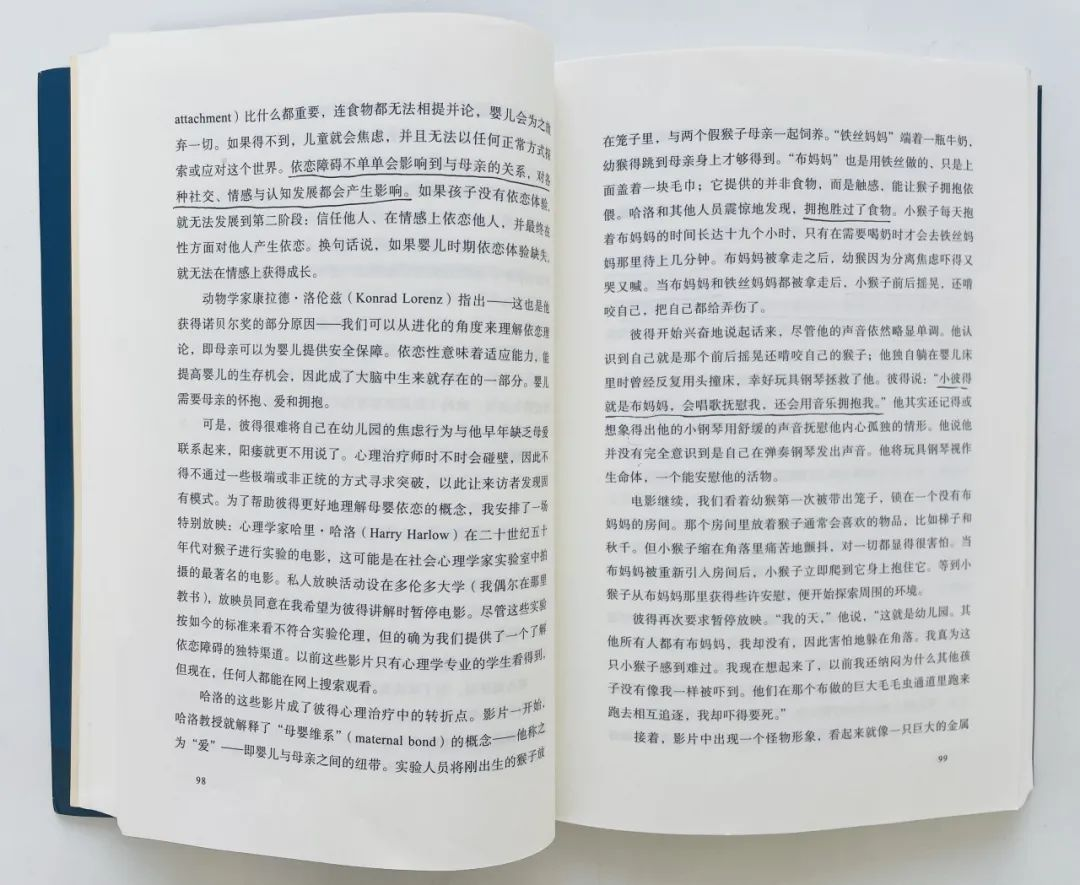 attachment）比什么都重要，连食物都无法相提并论，婴儿会为之放
弃一切。如果得不到，儿童就会焦虑，并且无法以任何正常方式探
索或应对这个世界。依恋障碍不单单会影响到与母亲的关系，对各
种社交、情感与认知发展都会产生影响。如果孩子没有依恋体验，
就无法发展到第二阶段：信任他人、在情感上依恋他人，并最终在
性方面对他人产生依恋。换句话说，如果婴儿时期依恋体验缺失，
就无法在情感上获得成长。
动物学家康拉德·洛伦兹（Konrad Lorenz）指出——这也是他
获得诺贝尔奖的部分原因——我们可以从进化的角度来理解依恋理
论，即母亲可以为婴儿提供安全保障。依恋性意味着适应能力，能
提高婴儿的生存机会，因此成了大脑中生来就存在的一部分。婴儿
需要母亲的怀抱、爱和拥抱。
可是，彼得很难将自己在幼儿园的焦虑行为与他早年缺乏母爱
联系起来，阳痿就更不用说了。心理治疗师时不时会碰壁，因此不
得不通过一些极端或非正统的方式寻求突破，以此让来访者发现固
有模式。为了帮助彼得更好地理解母婴依恋的概念，我安排了一场
特别放映：心理学家哈里·哈洛（Harry Harlow）在二十世纪五十
年代对猴子进行实验的电影，这可能是在社会心理学家实验室中拍
摄的最著名的电影。私人放映活动设在多伦多大学（我偶尔在那里
教书），放映员同意在我希望为彼得讲解时暂停电影。尽管这些实验
按如今的标准来看不符合实验伦理，但的确为我们提供了一个了解
依恋障碍的独特渠道。以前这些影片只有心理学专业的学生看得到，
但现在，任何人都能在网上搜索观看。
哈洛的这些影片成了彼得心理治疗中的转折点。影片一开始，
哈洛教授就解释了“母婴维系”（maternal bond）的概念——他称之
为“爱”——即婴儿与母亲之间的纽带。实验人员将刚出生的猴子放
98
在笼子里，与两个假猴子母亲一起饲养。“铁丝妈妈”端着一瓶牛奶，
幼猴得跳到母亲身上才够得到。“布妈妈”也是用铁丝做的，只是上
面盖着一块毛巾；它提供的并非食物，而是触感，能让猴子拥抱依
偎。哈洛和其他人员震惊地发现，拥抱胜过了食物。小猴子每天抱
着布妈妈的时间长达十九个小时，只有在需要喝奶时才会去铁丝妈
妈那里待上几分钟。布妈妈被拿走之后，幼猴因为分离焦虑吓得又
哭又喊。当布妈妈和铁丝妈妈都被拿走后，小猴子前后摇晃，还啃
咬自己，把自己都给弄伤了。
彼得开始兴奋地说起话来，尽管他的声音依然略显单调。他认
识到自己就是那个前后摇晃还啃咬自己的猴子；他独自躺在婴儿床
里时曾经反复用头撞床，幸好玩具钢琴拯救了他。彼得说：“小彼得
就是布妈妈，会唱歌抚慰我，还会用音乐拥抱我。”他其实还记得或
想象得出他的小钢琴用舒缓的声音抚慰他内心孤独的情形。他说他
并没有完全意识到是自己在弹奏钢琴发出声音。他将玩具钢琴视作
生命体，一个能安慰他的活物。
电影继续，我们看着幼猴第一次被带出笼子，锁在一个没有布
妈妈的房间。那个房间里放着猴子通常会喜欢的物品，比如梯子和
秋千。但小猴子缩在角落里痛苦地颤抖，对一切都显得很害怕。当
布妈妈被重新引入房间后，小猴子立即爬到它身上抱住它。等到小
猴子从布妈妈那里获得些许安慰，便开始探索周围的环境。
彼得再次要求暂停放映。“我的天，”他说，“这就是幼儿园。其
他所有人都有布妈妈，我却没有，因此害怕地躲在角落。我真为这
只小猴子感到难过。我现在想起来了，以前我还纳闷为什么其他孩
子没有像我一样被吓到。他们在那个布做的巨大毛毛虫通道里跑来
跑去相互追逐，我却吓得要死。”
接着，影片中出现一个怪物形象，看起来就像一只巨大的金属
99